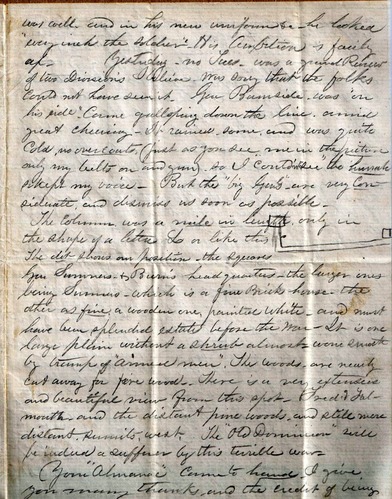 was well and in his new uniform &c - he looked
"every inch the soldier". His Ambition is fairly
up. Yesterday - no Tues - was a grand Review
of two Divisions I believe. Was sorry that the folks
could not have seen it. Gen Burnside was "on
his side". Came galloping down the line amid
great cheering - It rained some, and was quite
cold no overcoats, (just as you see me in the picture
only my belts on and gun), so I couldn't see the
except my voice - But the "big Guns" are very con
siderate, and dismiss us soon as possible.
The column was a mile in length, only in
the shape of a letter L or like this
The dot shows our position - the squares
Gen Sumners & Burns headquarters - the larger ones
being Sumners - which is a fine Brick house - the
other as fine, a wooden one, painted white - and must
have been splendid estates before the War - It is one
large plain without a shrub almost worn smooth
by tramp of "armed men". The woods are nearly
cut away for fire wood. There is a very extensive
and beautiful view from this spot. Fred's Fal-
mouth, and the distant pine woods, and still more
distant, summits, west. The "Old Dominion" will
be indeed a sufferer by this terrible war -
(Your "Almanac" Came to hand. I give
you many thanks, and the credit of being